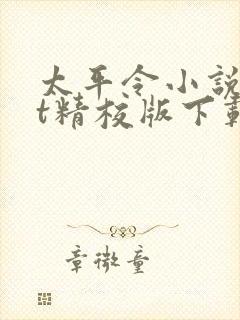 太平令小說
t精校版下載
章微童